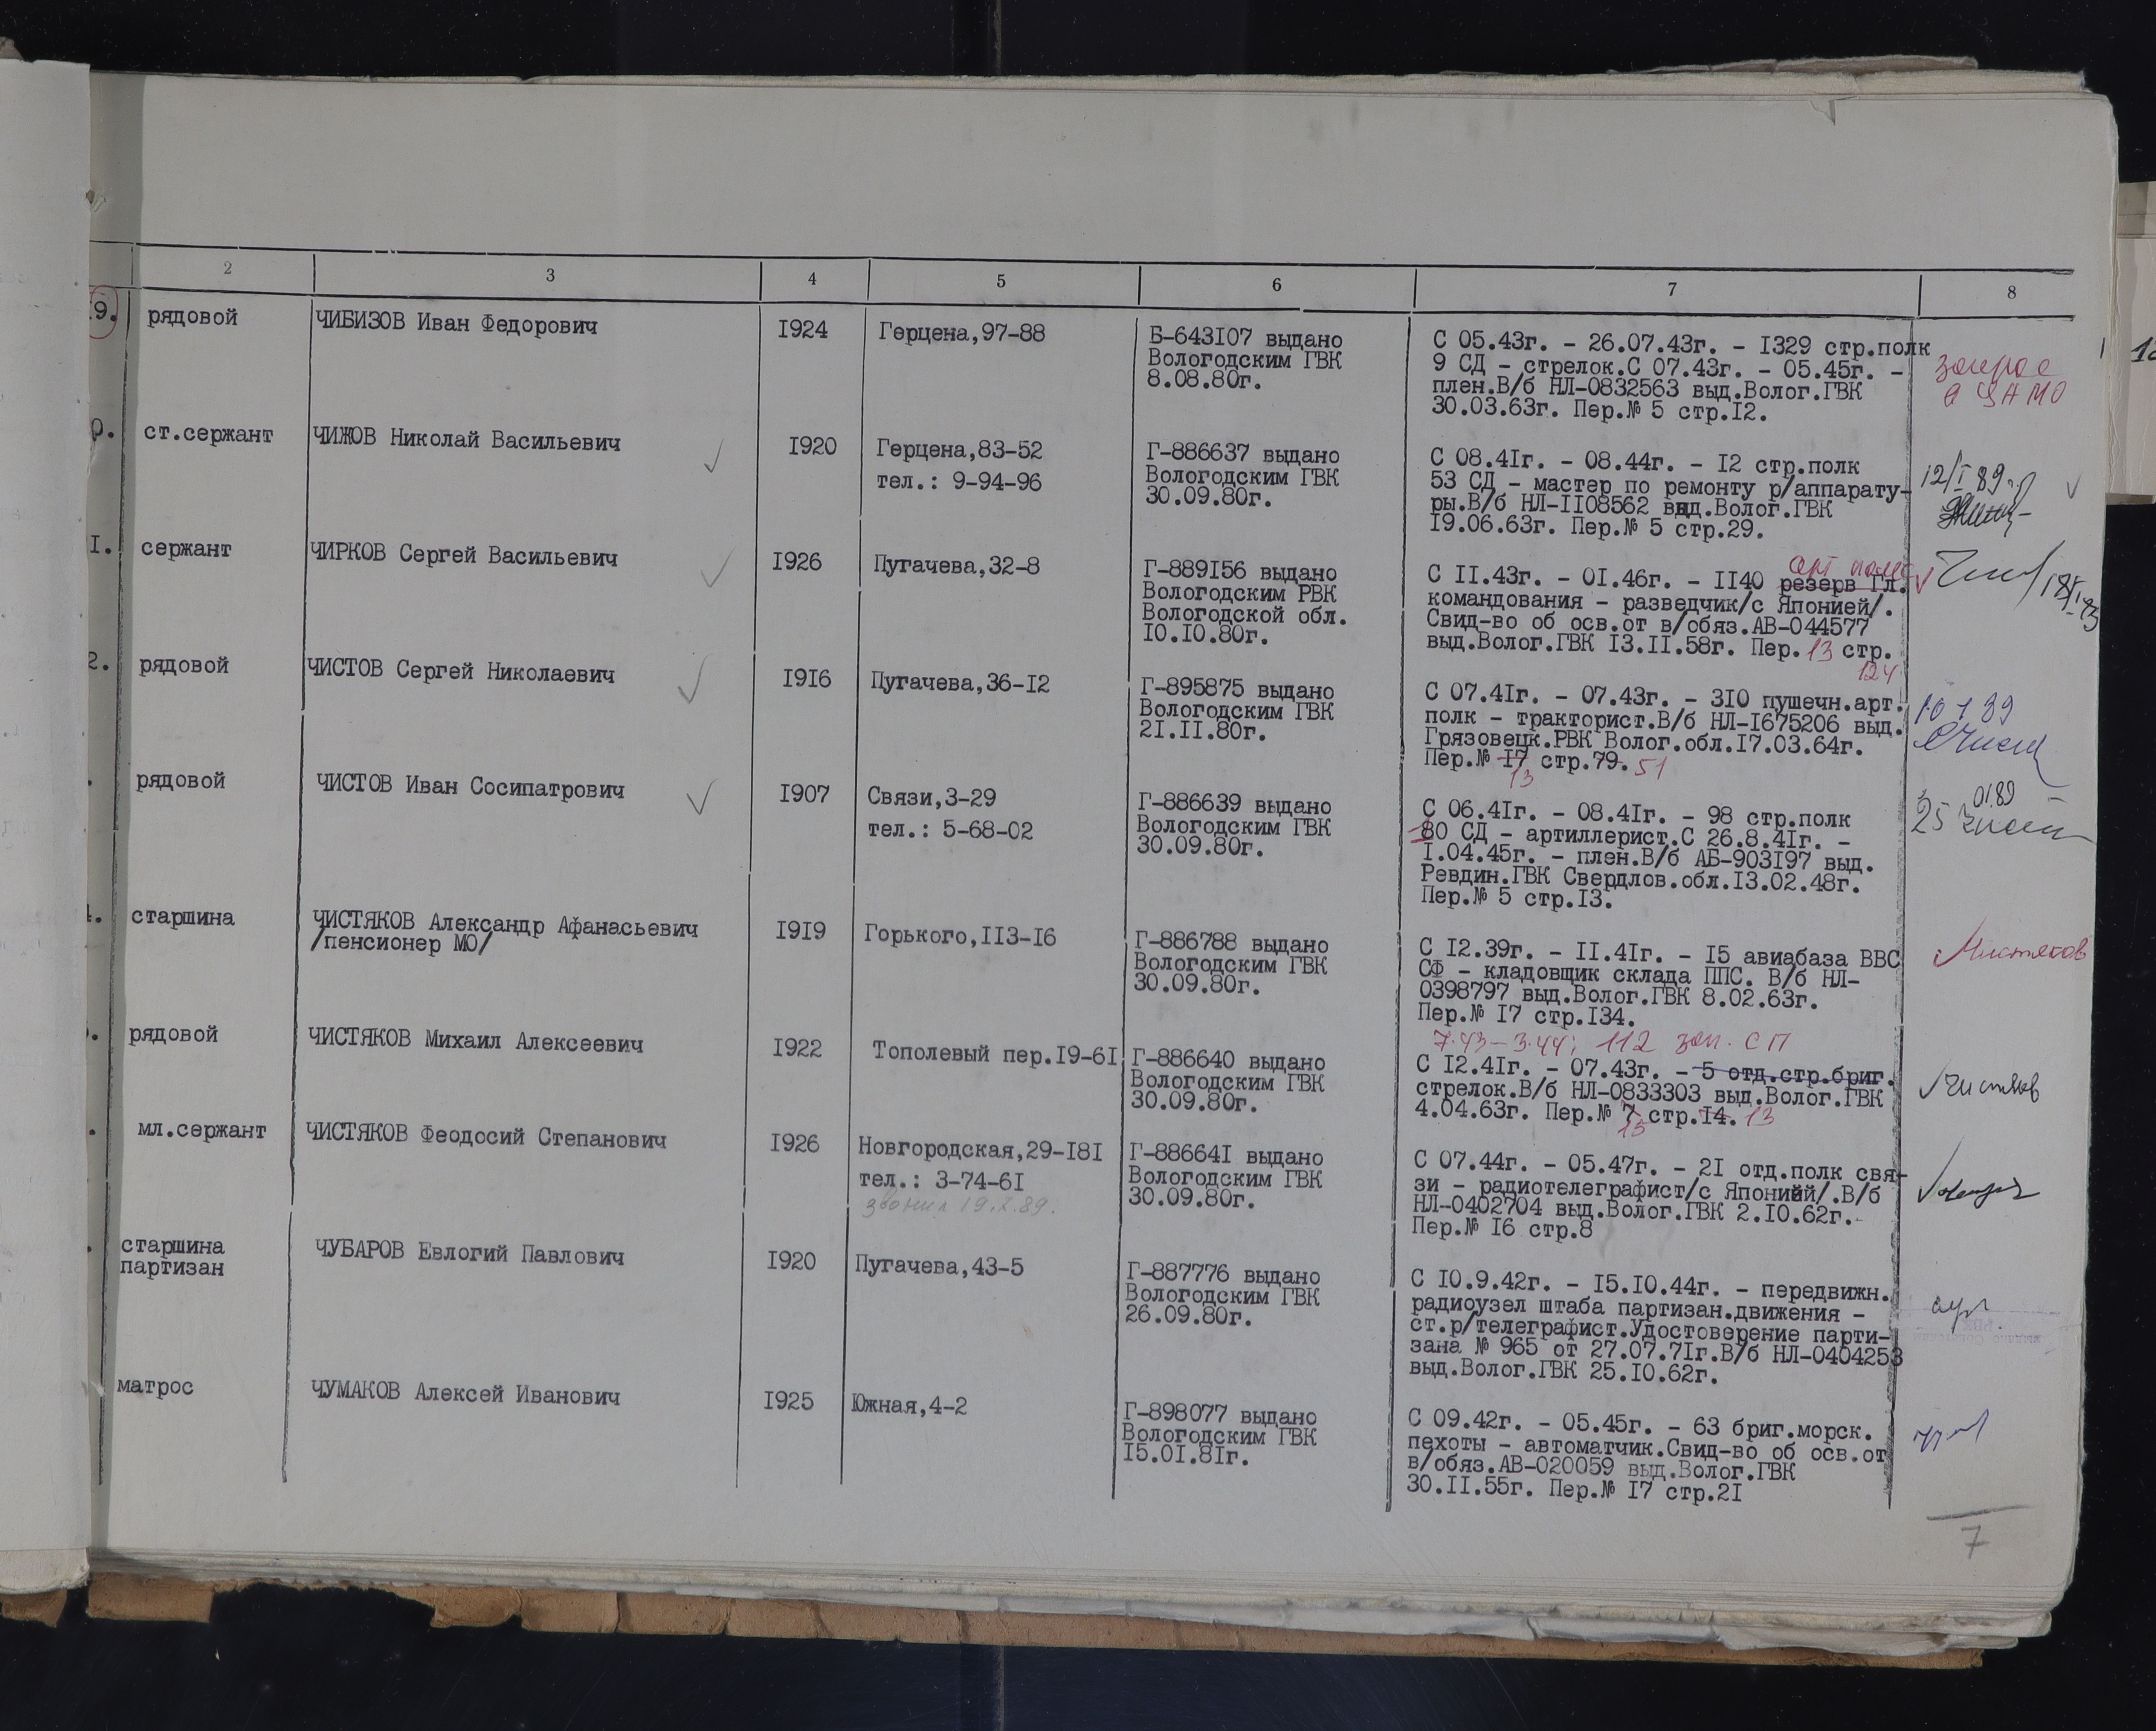 2 3 4 5 6 7 8
19. рядовой ЧИБИЗОВ Иван Федорович 1924 Герцена,97-88
Б-643107 выдано
Вологодским ГВК
8.08.80г.
С 05.43г. - 26.07.43г. - 1329 стр.полк
9 СД - стрелок.С 07.43г. - 05.45г. -
плен.В/б НЛ-0832563 выд.Волог.ГВК
30.03.63г. Пер.№ 5 стр.12.
в ЦАМО
0. ст.сержант ЧИЖОВ Николай Васильевич 1920 Герцена,83-52
тел.: 9-94-96
Г-886637 выдано
Вологодским ГВК
30.09.80г.
С 08.41г. - 08.44г. - 12 стр.полк
53 СД - мастер по ремонту р/аппарату-
ры.В/б НЛ-1108562 выд.Волог.ГВК
19.06.63г. Пер.№ 5 стр.29.
12/I 89г.
1. сержант ЧИРКОВ Сергей Васильевич 1926 Пугачева,32-8
Г-889156 выдано
Вологодским РВК
Вологодской обл.
10.10.80г.
арт полк
С 11.43г. - 01.46г. - 1140 резерв Гл.
командования - разведчик/с Японией/.
Свид-во об осв.от в/обяз.АВ-044577
выд.Волог.ГВК 13.11.58г. Пер. 13 стр.
124
2. рядовой ЧИСТОВ Сергей Николаевич 1916 Пугачева,36-12
Г-895875 выдано
Вологодским ГВК
21.11.80г.
С 07.41г. - 07.43г. - 310 пушечн.арт.
полк - тракторист.В/б НЛ-1675206 выд.
Грязовецк.РВК Волог.обл.17.03.64г.
Пер.№ 17 стр.79. 51
13
10 1 89
. рядовой ЧИСТОВ Иван Сосипатрович 1907 Связи,3-29
тел.: 5-68-02
Г-886639 выдано
Вологодским ГВК
30.09.80г.
С 06.41г. - 08.41г. - 98 стр.полк
180 СД - артиллерист.С 26.8.41г. -
1.04.45г. - плен.В/б АБ-903197 выд.
Ревдин.ГВК Свердлов.обл.13.02.48г.
Пер.№ 5 стр.13.
25 01.89
4. старшина ЧИСТЯКОВ Александр Афанасьевич
/пенсионер МО/
1919 Горького,113-16
Г-886788 выдано
Вологодским ГВК
30.09.80г.
С 12.39г. - 11.41г. - 15 авиабаза ВВС
СФ - кладовщик склада ППС. В/б НЛ-
0398797 выд.Волог.ГВК 8.02.63г.
Пер.№ 17 стр.134.
Чистяков
. рядовой ЧИСТЯКОВ Михаил Алексеевич 1922 Тополевый пер.19-61
Г-886640 выдано
Вологодским ГВК
30.09.80г.
7.43-3.44; 112 зап. СП
С 12.41г. - 07.43г. - 5 отд.стр.бриг.
стрелок.В/б НЛ-0833303 выд.Волог.ГВК
4.04.63г. Пер.№ 7 стр.14. 13
15
Чистяков
. мл.сержант ЧИСТЯКОВ Феодосий Степанович 1926 Новгородская,29-181
тел.: 3-74-61
звонил 19.I.89.
Г-886641 выдано
Вологодским ГВК
30.09.80г.
С 07.44г. - 05.47г. - 21 отд.полк свя-
зи - радиотелеграфист/с Японией/.В/б
НЛ-0402704 выд.Волог.ГВК 2.10.62г.
Пер.№ 16 стр.8
. старшина
партизан
ЧУБАРОВ Евлогий Павлович 1920 Пугачева,43-5
Г-887776 выдано
Вологодским ГВК
26.09.80г.
С 10.9.42г. - 15.10.44г. - передвижн.
радиоузел штаба партизан.движения -
ст.р/телеграфист.Удостоверение парти-
зана № 965 от 27.07.71г.В/б НЛ-0404253
выд.Волог.ГВК 25.10.62г.
матрос ЧУМАКОВ Алексей Иванович 1925 Южная,4-2
Г-898077 выдано
Вологодским ГВК
15.01.81г.
С 09.42г. - 05.45г. - 63 бриг.морск.
пехоты - автоматчик.Свид-во об осв.от
в/обяз.АВ-020059 выд.Волог.ГВК
30.11.55г. Пер.№ 17 стр.21
7